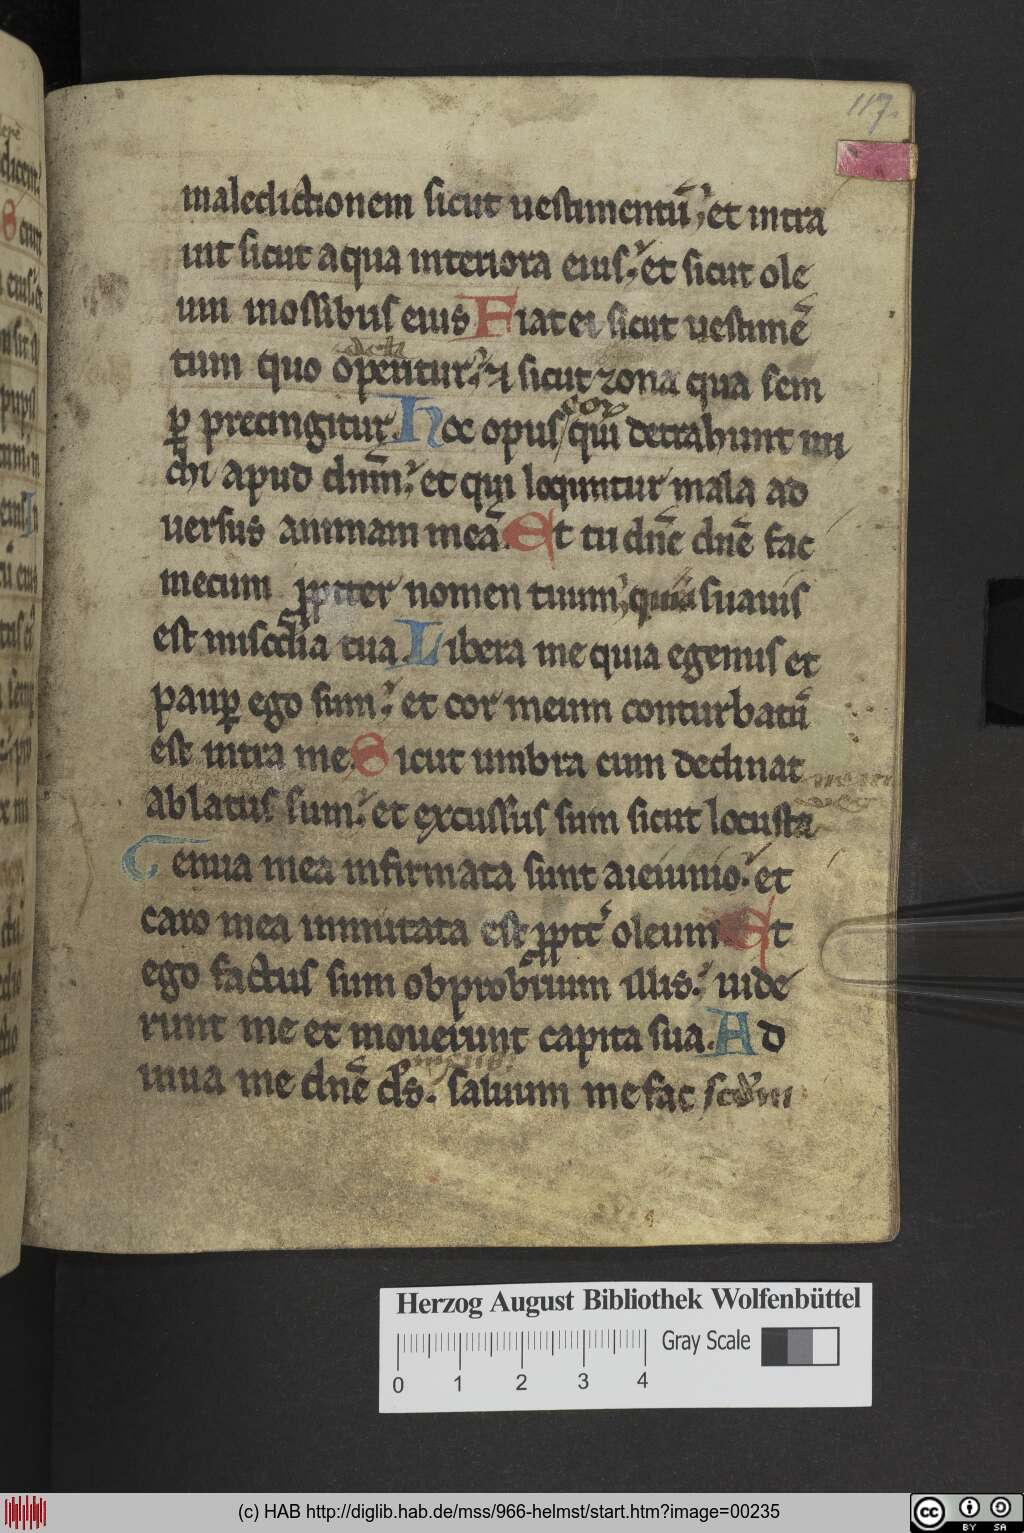 117.
maledictionem sicut uestimentū. et intra
uit sicut aqua interiora eius. et sicut ole
um inossibus eius Fiat ei sicut uestimē
tum quo operitur. ⁊ sicut zona qua sem
ꝑ precingitur. Hoc opus cor̄ qui detrahunt mi
chi apud dn̄m. et qui locuntur mala ad
uersus animam meā. Et tu dn̄e dn̄e fac
mecum ꝓpter nomen tuum, quia suauis
est misc̄dia tua. Libera me quia egenus et
pauꝑ ego sum. et cor meum conturbatū
est intra me. Sicut umbra cum declinat
ablatus sum. et excussus sum sicut locusta
Genua mea infirmata sunt aieiunio. et
caro mea inmutata est ꝓpt̄ oleum Et
ego factus sum obprobrium illis. uide
runt me et mouerunt capita sua. Ad
iuua me dn̄e ds̄. saluum me fac scd̄m
Herzog August Bibliothek Wolfenbüttel
Gray Scale
0 1 2 3 4
(c) HAB http://diglib.hab.de/mss/966-helmst/start.htm?image=00235
cc BY SA